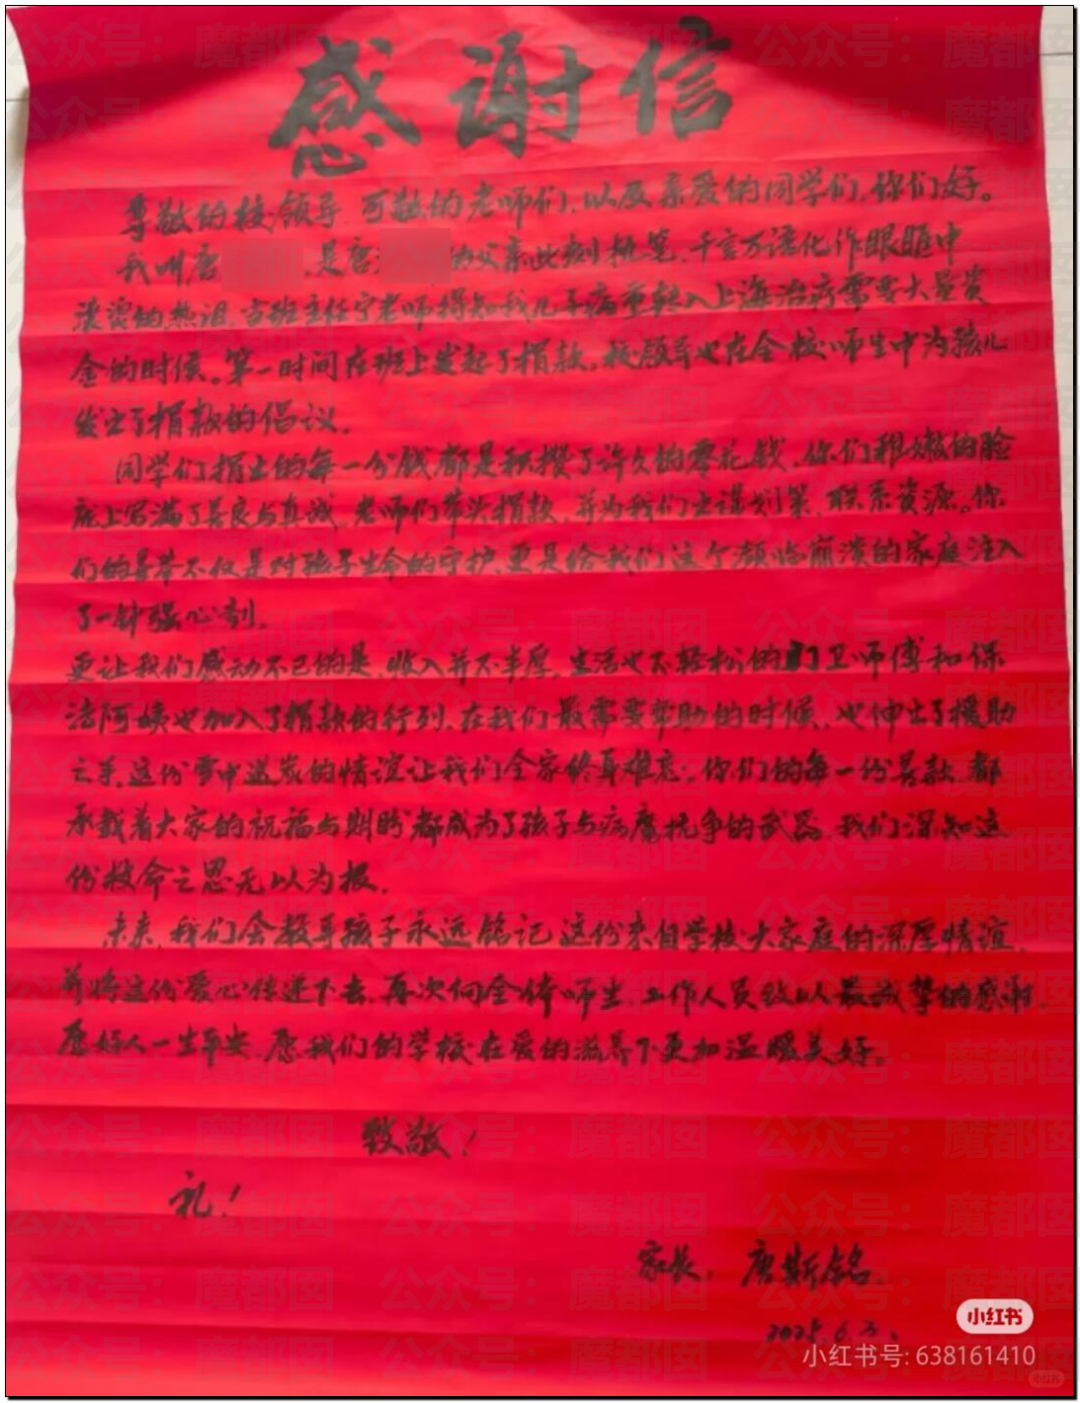 感谢信
尊敬的校领导、可敬的老师们，以及亲爱的同学们，你们好。
我叫唐 ，是唐 的父亲此刻执笔，千言万语化作眼眶中
滚烫的热泪，当班主任宁老师得知我儿子病重转入上海治疗需要大量资
金的时候。第一时间在班上发起了捐款。校领导也在全校师生中为孩儿
发出了捐款的倡议。
同学们捐出的每一分钱都是积攒了许久的零花钱、你们稚嫩的脸
庞上写满了善良与真诚，老师们带头捐款，并为我们出谋划策，联系资源。你
们的善举不仅是对孩子生命的守护，更是给我们这个濒临崩溃的家庭注入
了一针强心剂。
更让我们感动不已的是，收入并不丰厚，生活也不轻松的门卫师傅和保
洁阿姨也加入了捐款的行列，在我们最需要帮助的时候，也伸出了援助
之手，这份雪中送炭的情谊让我们全家终身难忘。你们的每一份善款，都
承载着大家的祝福与期盼都成为了孩子与病魔抗争的武器，我们深知这
份救命之恩无以为报。
未来，我们会教导孩子永远铭记这份来自学校大家庭的深厚情谊，
并将这份爱心传递下去，再次向全体师生，工作人员致以最诚挚的感谢，
愿好人一生平安，愿我们的学校在爱的滋养下更加温暖美好。
致敬！
礼！
家长：唐斯铭
2025.6.3.
小红书
小红书号: 638161410
小红书
公众号：魔都囡